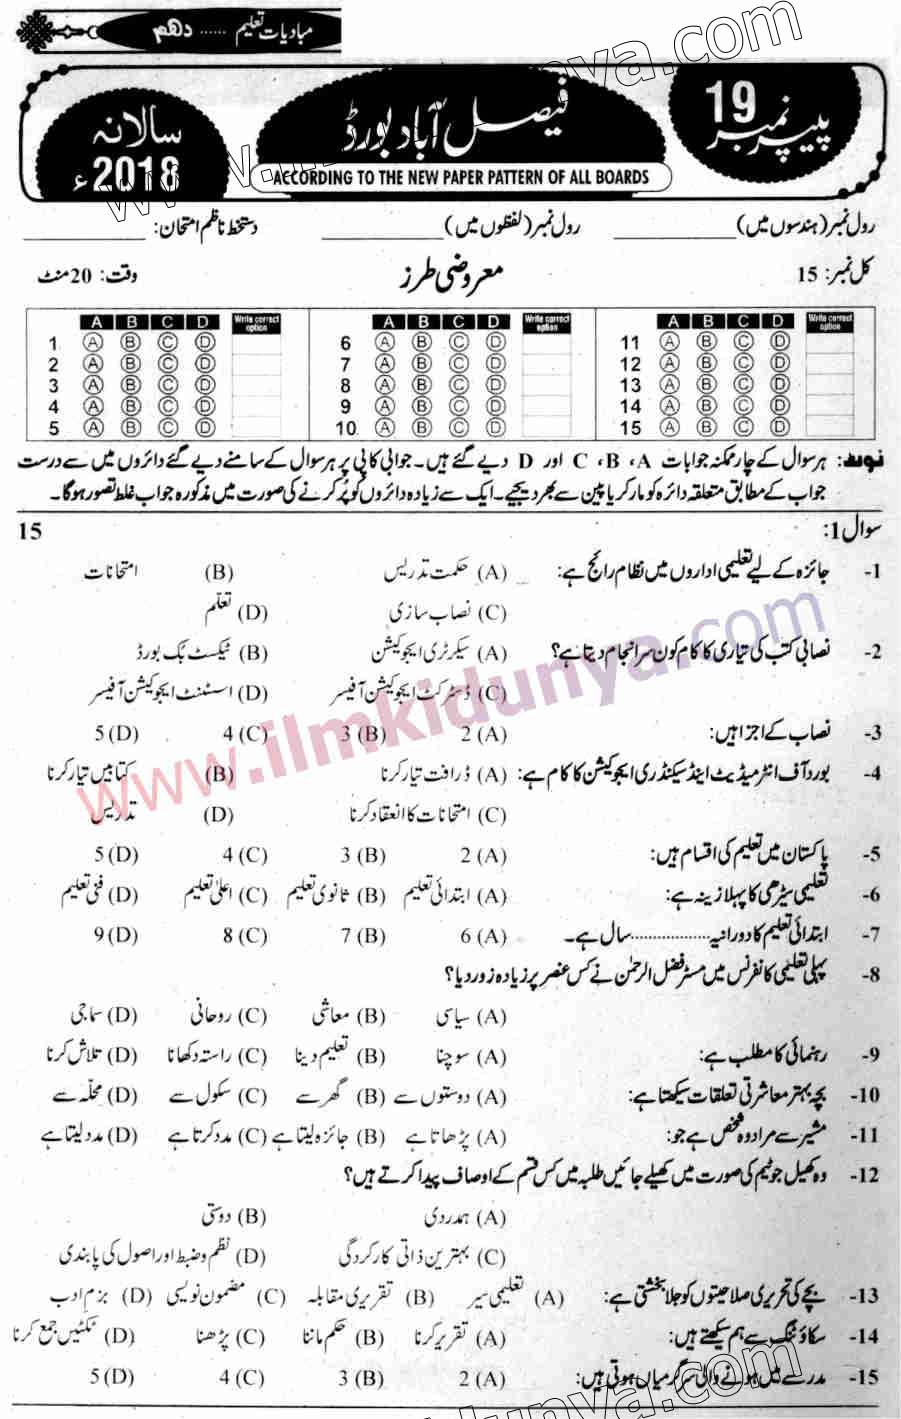 مبادیات تعلیم ...... دھم
پیپر نمبر 19
فیصل آباد بورڈ
ACCORDING TO THE NEW PAPER PATTERN OF ALL BOARDS
سالانہ 2018ء
رول نمبر (ہندسوں میں) ____________ رول نمبر (لفظوں میں) ____________ دستخط ناظم امتحان: ____________
کل نمبر: 15 معروضی طرز وقت: 20 منٹ
A B C D Write correct option A B C D Write correct option A B C D Write correct option
1 A B C D 6 A B C D 11 A B C D
2 A B C D 7 A B C D 12 A B C D
3 A B C D 8 A B C D 13 A B C D
4 A B C D 9 A B C D 14 A B C D
5 A B C D 10 A B C D 15 A B C D
نوٹ: ہر سوال کے چار ممکنہ جوابات A، B، C اور D دیے گئے ہیں۔ جوابی کاپی پر ہر سوال کے سامنے دیے گئے دائروں میں سے درست
جواب کے مطابق متعلقہ دائرہ کو مارکر یا پین سے بھر دیجیے۔ ایک سے زیادہ دائروں کو پُر کرنے کی صورت میں مذکورہ جواب غلط تصور ہوگا۔
سوال 1: 15
1- جائزہ کے لیے تعلیمی اداروں میں نظام رائج ہے: (A) حکمت تدریس (B) امتحانات
(C) نصاب سازی (D) تعلّم
2- نصابی کتب کی تیاری کا کام کون سرانجام دیتا ہے؟ (A) سیکرٹری ایجوکیشن (B) ٹیکسٹ بک بورڈ
(C) ڈسٹرکٹ ایجوکیشن آفیسر (D) اسسٹنٹ ایجوکیشن آفیسر
3- نصاب کے اجزا ہیں: (A) 2 (B) 3 (C) 4 (D) 5
4- بورڈ آف انٹرمیڈیٹ اینڈ سیکنڈری ایجوکیشن کا کام ہے: (A) ڈرافٹ تیار کرنا (B) کتابیں تیار کرنا
(C) امتحانات کا انعقاد کرنا (D) تدریس
5- پاکستان میں تعلیم کی اقسام ہیں: (A) 2 (B) 3 (C) 4 (D) 5
6- تعلیمی سیڑھی کا پہلا زینہ ہے: (A) ابتدائی تعلیم (B) ثانوی تعلیم (C) اعلیٰ تعلیم (D) فنی تعلیم
7- ابتدائی تعلیم کا دورانیہ ................. سال ہے۔ (A) 6 (B) 7 (C) 8 (D) 9
8- پہلی تعلیمی کانفرنس میں مسٹر فضل الرحمٰن نے کس عنصر پر زیادہ زور دیا؟
(A) سیاسی (B) معاشی (C) روحانی (D) سماجی
9- رہنمائی کا مطلب ہے: (A) سوچنا (B) تعلیم دینا (C) راستہ دکھانا (D) تلاش کرنا
10- بچہ بہتر معاشرتی تعلقات سیکھتا ہے: (A) دوستوں سے (B) گھر سے (C) سکول سے (D) محلّہ سے
11- مشیر سے مراد وہ شخص ہے جو: (A) پڑھاتا ہے (B) جائزہ لیتا ہے (C) مدد کرتا ہے (D) مدد لیتا ہے
12- وہ کھیل جو ٹیم کی صورت میں کھیلے جائیں طلبہ میں کس قسم کے اوصاف پیدا کرتے ہیں؟
(A) ہمدردی (B) دوستی
(C) بہترین ذاتی کارکردگی (D) نظم و ضبط اور اصول کی پابندی
13- بچے کی تحریری صلاحیتوں کو جلا بخشتی ہے: (A) تعلیمی سیر (B) تقریری مقابلہ (C) مضمون نویسی (D) بزم ادب
14- سکاؤٹنگ سے ہم سیکھتے ہیں: (A) تقریر کرنا (B) حکم ماننا (C) پڑھنا (D) ٹکٹیں جمع کرنا
15- مدرسے میں ہونے والی سرگرمیاں ہوتی ہیں: (A) 2 (B) 3 (C) 4 (D) 5
www.ilmkidunya.com